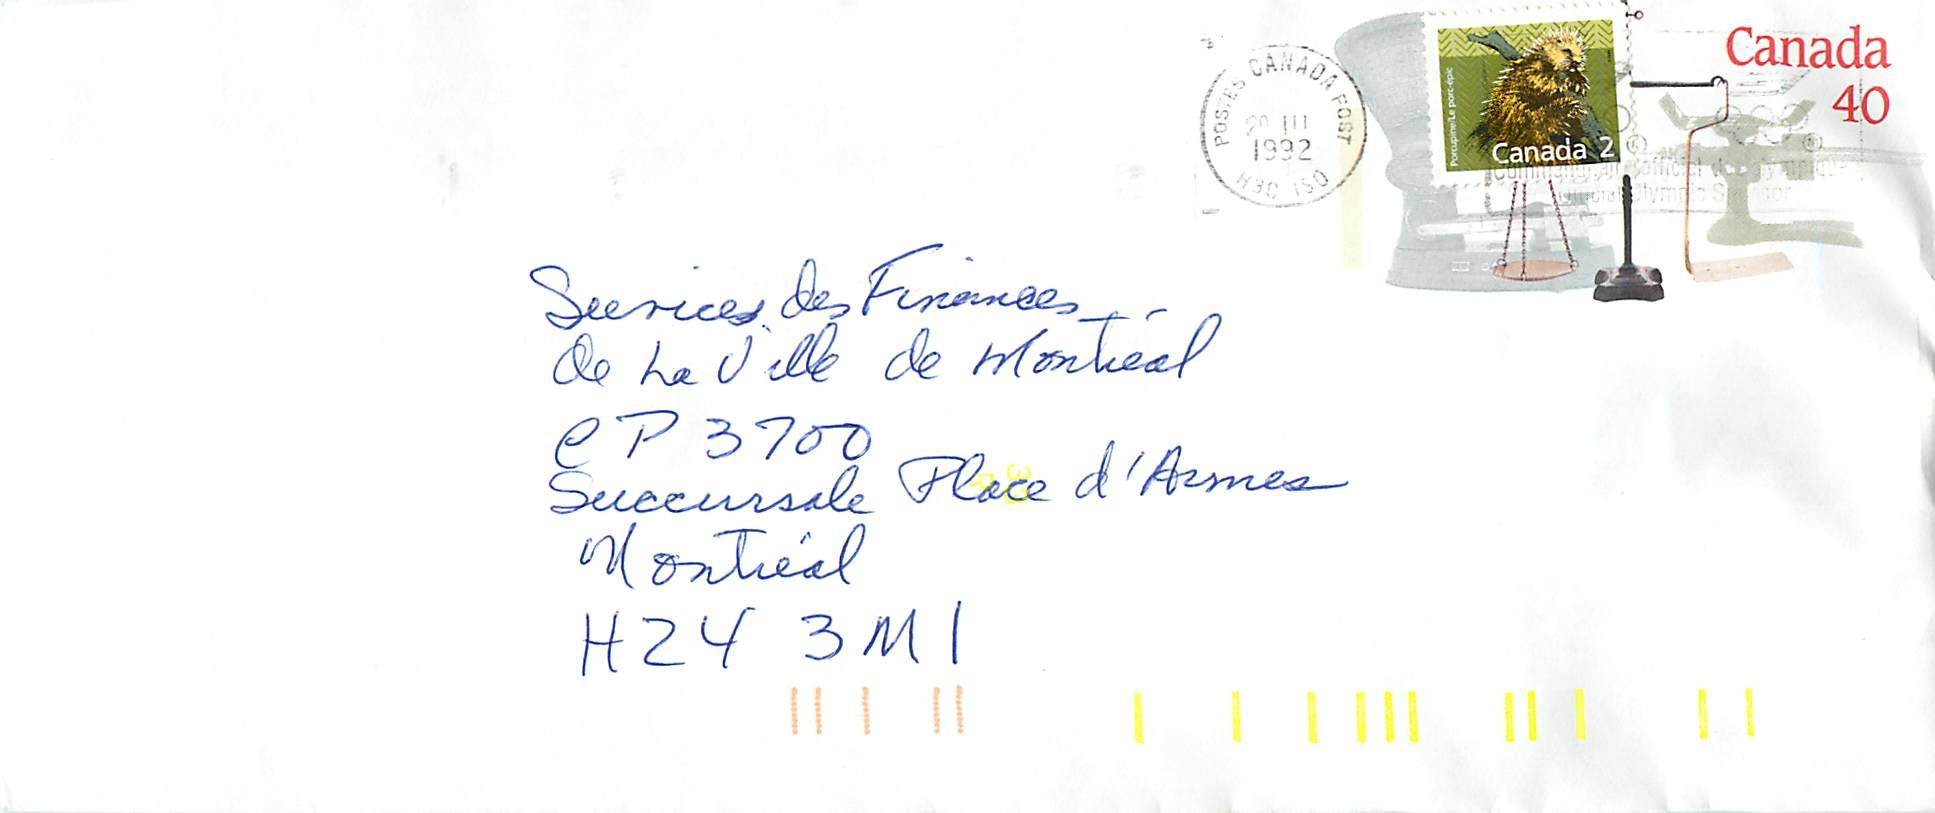 POSTES CANADA POST
20 III
1992
H3C 1S0
Porcupine/Le porc-épic
Canada 2
Canada
40
Official Olympic Sponsor
Services des Finances
de La Ville de Montréal
CP 3700
Succursale Place d'Armes
Montréal
H24 3M1